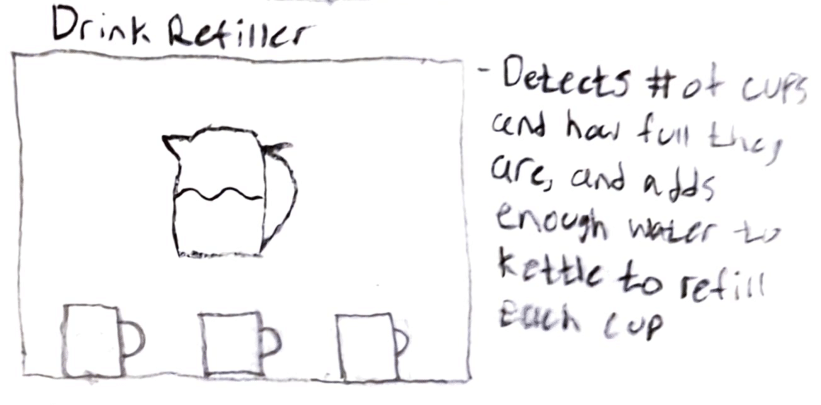 Drink Refiller
- Detects # of cups
and how full they
are, and adds
enough water to
kettle to refill
each cup